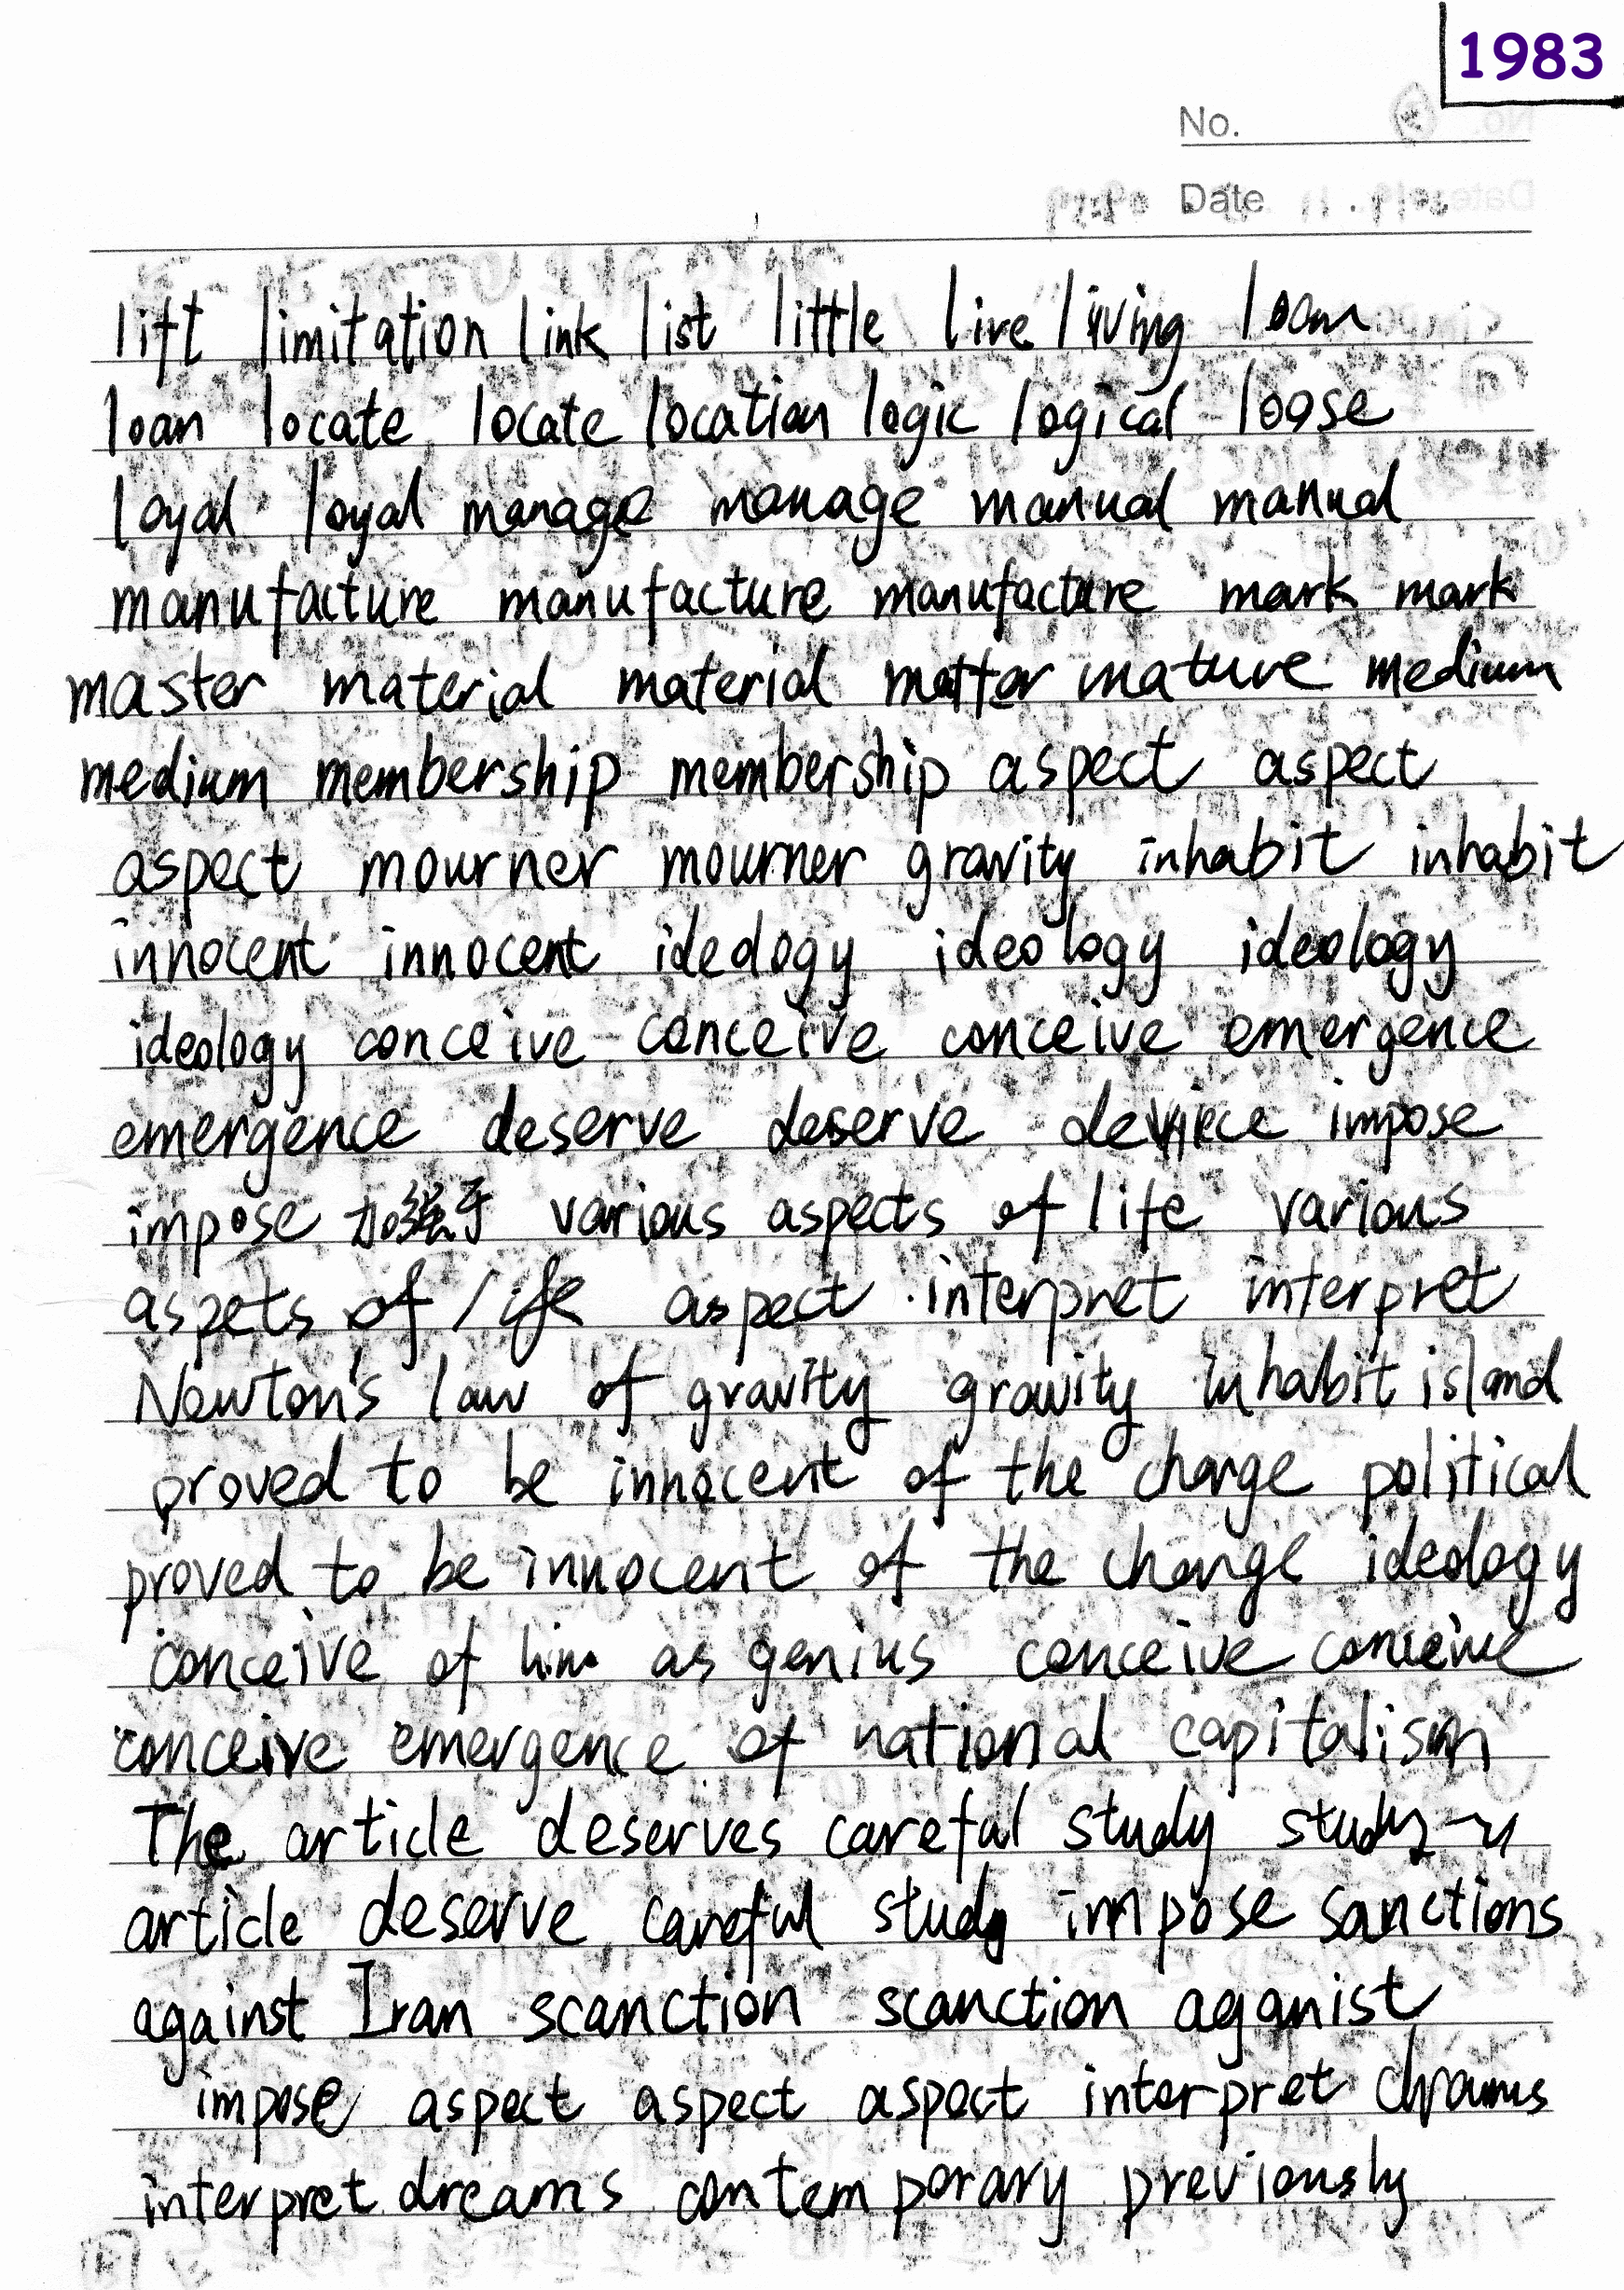 1983
No.
Date
lift limitation link list little live living loan
loan locate locate location logic logical loose
loyal loyal manage manage manual manual
manufacture manufacture manufacture mark mark
master material material matter mature medium
medium membership membership aspect aspect
aspect mourner mourner gravity inhabit inhabit
innocent innocent idedogy ideology ideology
ideology conceive conceive conceive emergence
emergence deserve deserve impose
impose 加强于 various aspects of life various
aspets of life aspect interpret interpret
Newton's law of gravity gravity inhabit island
proved to be innocent of the charge political
proved to be innocent of the charge ideology
conceive of him as genius conceive conceive
conceive emergence of national capitalism
The article deserves careful study study
article deserve careful study impose sanctions
against Iran scanction scanction aganist
impose aspect aspect aspect interpret
interpret dreams contemporary previously